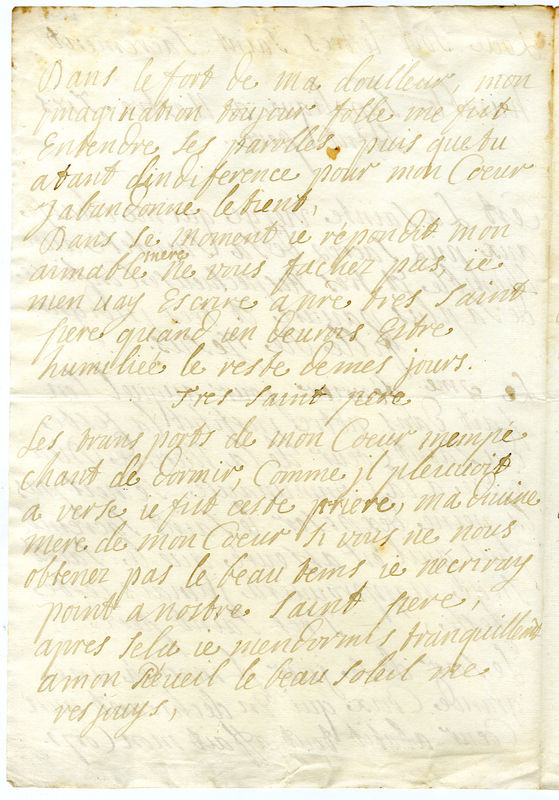 Dans le fort de ma doulleur, mon
jmagination toujour folle me fiet
Entendre ses parolles, puis que tu
a tant dindiference pour mon Coeur
Jabandonne le tient,
Dans se moment ie répondit mon
aimable mere ne vous fachez pas, ie
men vay Escrire a nre tres saint
pere quand jen deverois Estre
humiliée le reste de mes jours.
Tres saint pere
Les transports de mon Coeur mempe
chant de dormir, Comme jl pleuvoit
a verse ie fiet ceste priere, ma divine
mere de mon Coeur si vous ne nous
obtenez pas le beau tems ie nécriray
point a nostre saint pere,
apres sela ie mendormis tranquillemt
a mon Réueil le beau soleil me
resjouys,